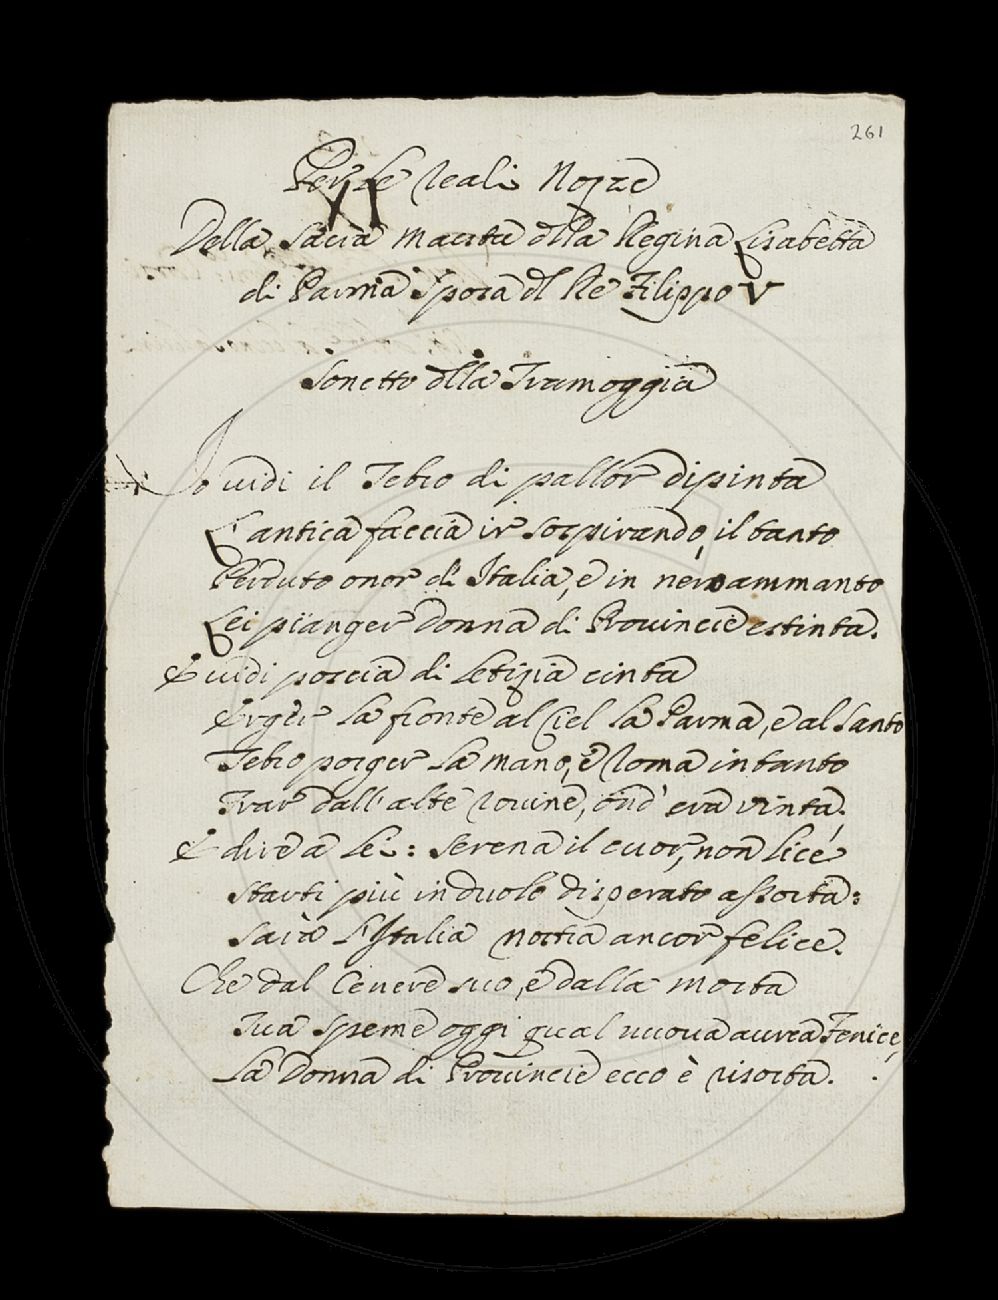 261
Per le reali Nozze
XI
Della Sacra Maestà dlla Regina Lisabetta
di Parma Sposa dl Re Filippo V
Sonetto dlla Tramoggia
Io vidi il Tebro di pallor dipinta
L'antica faccia ir sospirando, il tanto
Perduto onor di Italia, e in nero ammanto
Lei pianger Donna di Provincie estinta.
E vidi poscia di letizia cinta
Erger la fronte al Ciel la Parma, e al Santo
Tebro porger la mano, e Roma intanto
Trar dall'alte rovine, ond' era vinta,
E dire a lei: Serena il cuor, non lice
Starti più in duolo disperato assorta:
Sarà l'Italia nostra ancor felice.
Che dal Cenere suo, e dalla morta
Tua speme oggi qual nuova aurea Fenice,
La Donna di Provincie ecco è risorta.